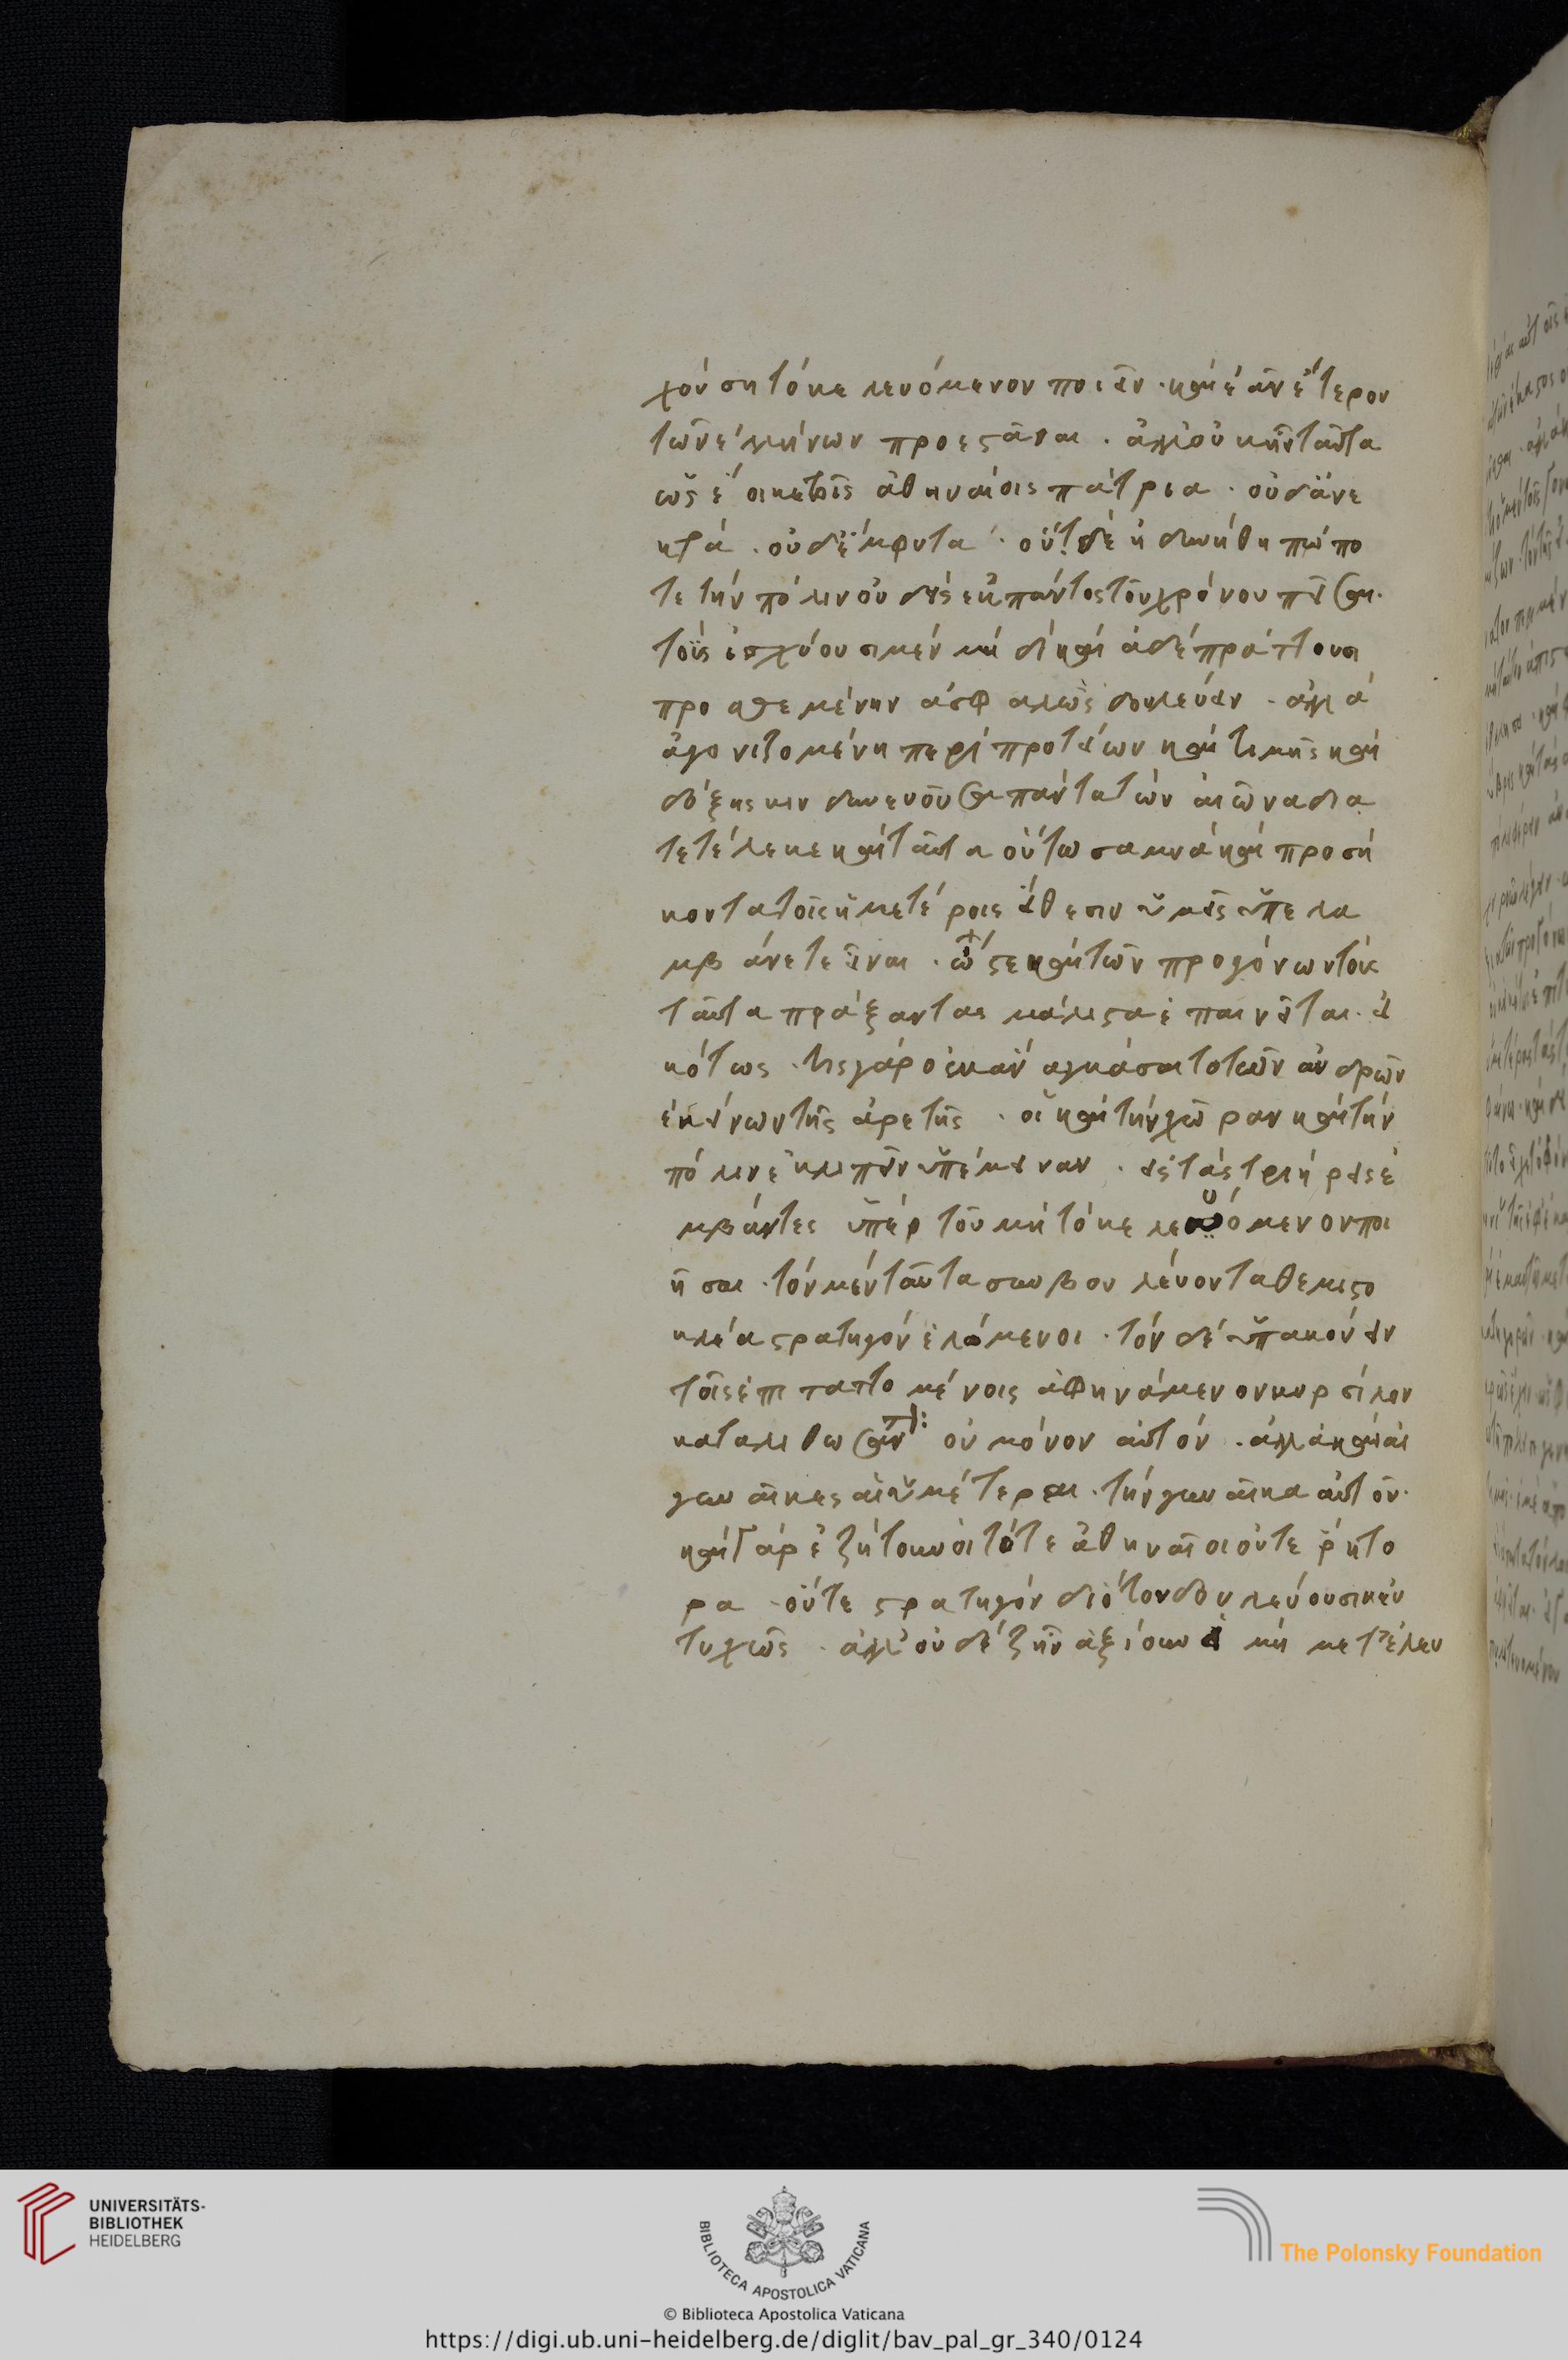 χόνση τὸ κελευόμενον ποιεῖν · καὶ ἐᾶν ἕτερον
τῶν ἑλλήνων προεστάναι . ἀλλ' οὐκ ἦν ταῦτα
ὡς ἔοικε τοῖς ἀθηναίοις πάτρια · οὐδ' ἀνε
κτά . οὐδ' ἔμφυτα · οὐδὲ ἠδυνήθη πώπο
τε τὴν πόλιν οὐδεὶς ἐκ παντὸς τοῦ χρόνου πεῖσαι ·
τοῖς ἰσχύουσι μὲν μὴ δίκαι ἃ δὲ πράττουσι
προσθεμένην ἀσφαλῶς δουλεύειν . ἀλλὰ
ἀγονιζομένη περὶ προτείων καὶ τιμῆς καὶ
δόξης κινδυνεύουσα πάντα τὼν αἰῶνα δια
τετέλεκε καὶ ταῦτα οὕτω σαμνὰ καὶ προσή
κοντα τοῖς ἡμετέροις εἴθεσιν ὑμεῖς ὑπελα
μβάνετε εἶναι . ὥστε καὶ τῶν προγόνων τοὺς
ταῦτα πράξαντας μάλιστα ἐπαινεῖται . εἰ
κότως . τίς γὰρ οὐκ ἂν ἀγκάσαιτο τῶν ἀνδρῶν
ἐκείνων τῆς ἀρετῆς . οἳ καὶ τὴν χῶραν καὶ τὴν
πόλιν ἐκλιπεῖν ὑπέμειναν . εἰς τὰς τριήρεις ἐ
μβάντες ὑπὲρ τοῦ μὴ τὸ κελευόμενον ποι
ῆσαι . τὸν μὲν ταῦτα συμβουλεύοντα θεμιστο
κλέα στρατηγὸν ἑλόμενοι . τὸν δὲ ὑπακούειν
τοῖς ἐπιταττομένοις ἀφηνάμενον κυρσίλον
καταλιθώσαντ: οὐ μόνον αὐτόν . ἀλλὰ καὶ αἱ
γυναῖκες αἱ ὑμέτεραι . τὴν γυναῖκα αὐτοῦ ·
καὶ γὰρ ἐζήτουν οἱ τότε ἀθηναῖοι οὔτε ῥήτο
ρα . οὔτε στρατηγὸν δι' ὅτον δουλεύουσιν εὐ
τυχῶς . ἀλλ' οὐδὲ ζῆν ἀξίουν εἰ μὴ μετ' ἐλευ
UNIVERSITÄTS-
BIBLIOTHEK
HEIDELBERG
BIBLIOTECA APOSTOLICA VATICANA
© Biblioteca Apostolica Vaticana
The Polonsky Foundation
https://digi.ub.uni-heidelberg.de/diglit/bav_pal_gr_340/0124